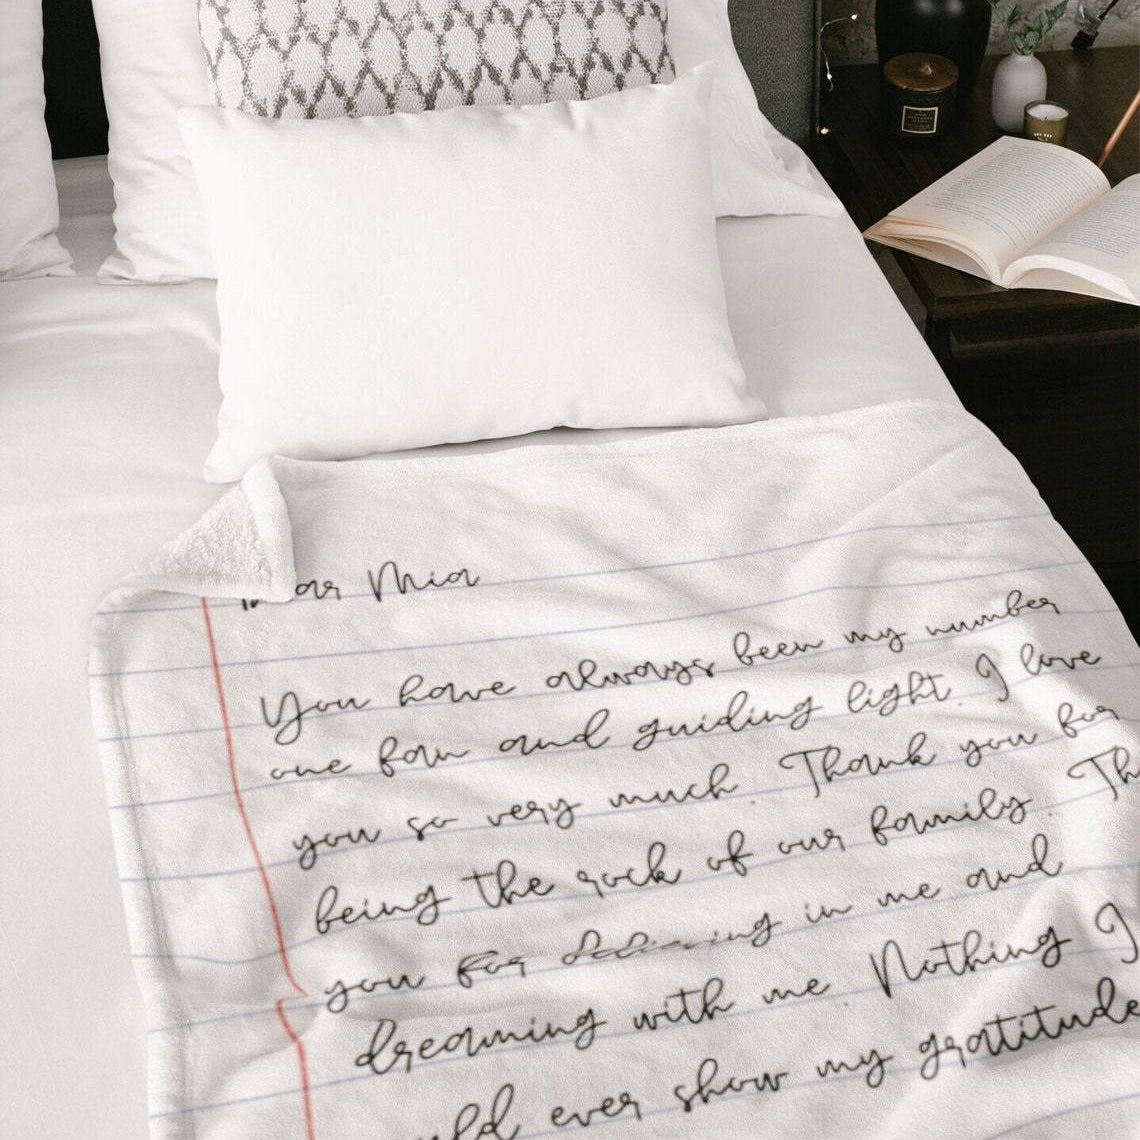 ar Mia
You have always been my number
one fan and guiding light. I love
you so very much. Thank you for
being the rock of our family. Th
you for believing in me and
dreaming with me. Nothing I
uld ever show my gratitude